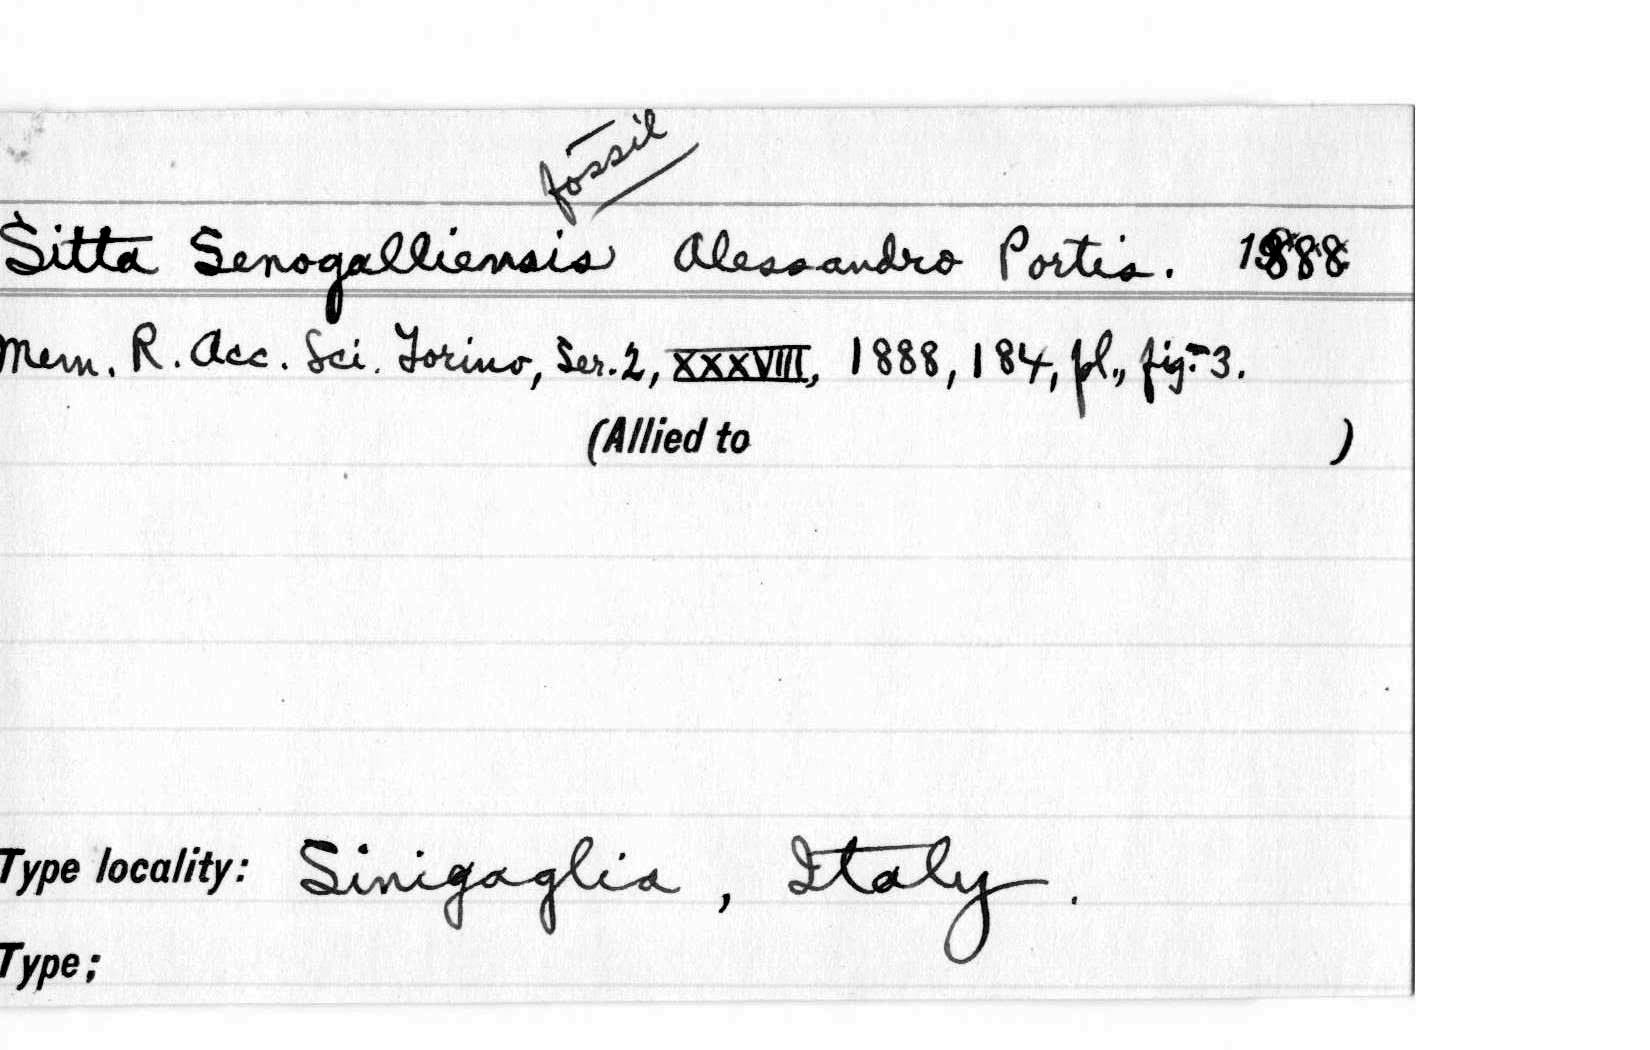 fossil
Sitta Senogalliensis Alessandro Portis. 1888
Mem. R. Acc. Sci. Torino, Ser. 2, XXXVIII, 1888, 184, pl., fig. 3.
(Allied to )
Type locality: Sinigaglia, Italy.
Type;